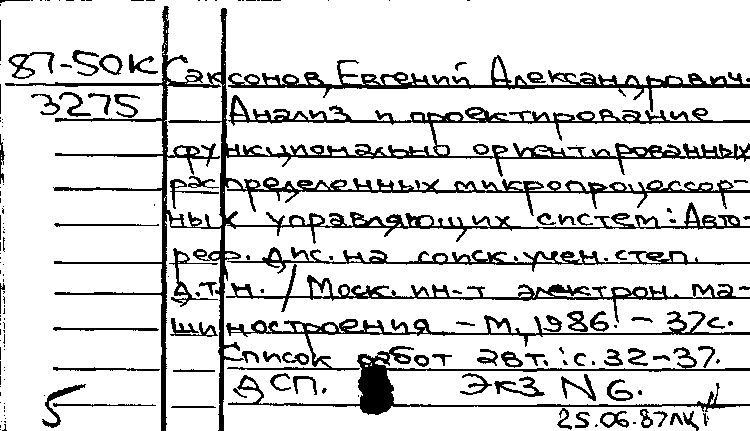 87-50К Саксонов, Евгений Александрович.
3275 Анализ и проектирование
функционально ориентированных
распределенных микропроцессор-
ных управляющих систем: Авто-
реф. дис. на соиск. учен. степ.
д.т.н. / Моск. ин-т электрон. ма-
шиностроения. - М., 1986. - 37с.
Список работ авт.: с. 32-37.
ДСП. Экз N 6.
5 25.06.87